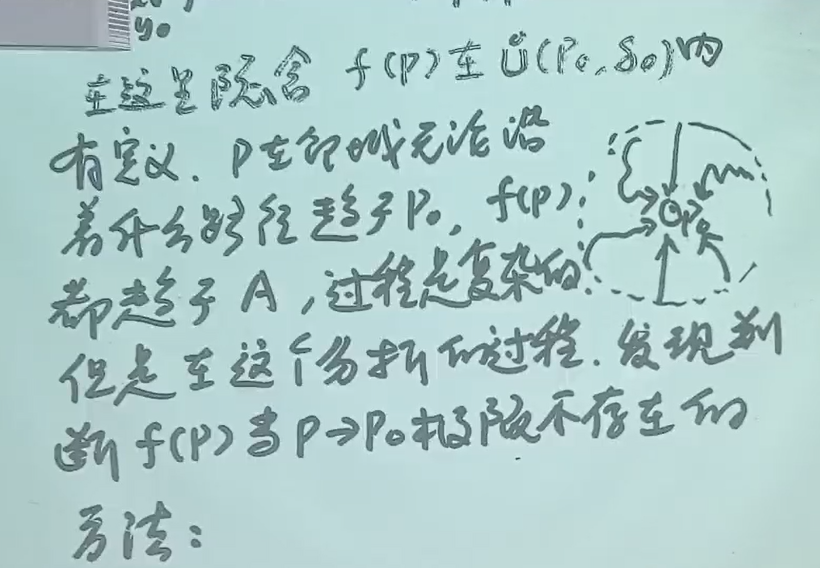 y₀
在这里隐含 f(P)在 Ů(P₀,δ₀)内
有定义. P在邻域无论沿
着什么路径趋于P₀, f(P)
都趋于 A ,过程是复杂的
但是在这个分析的过程.发现判
断 f(P)当P→P₀极限不存在的
方法:
P₀